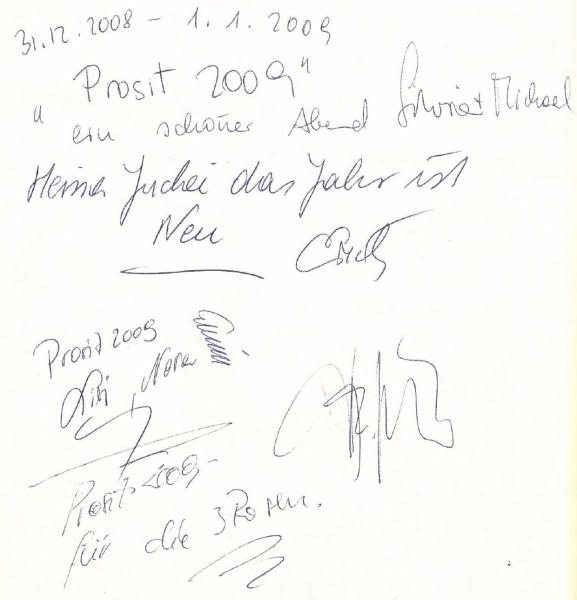 31.12.2008 - 1.1.2009
"Prosit 2009"
ein schöner Abend Silvia + Michael
Juchei das Jahr ist
Neu
Prosit 2009
Lili, Nora
Prosit 2009-
für die 3 Rosen.